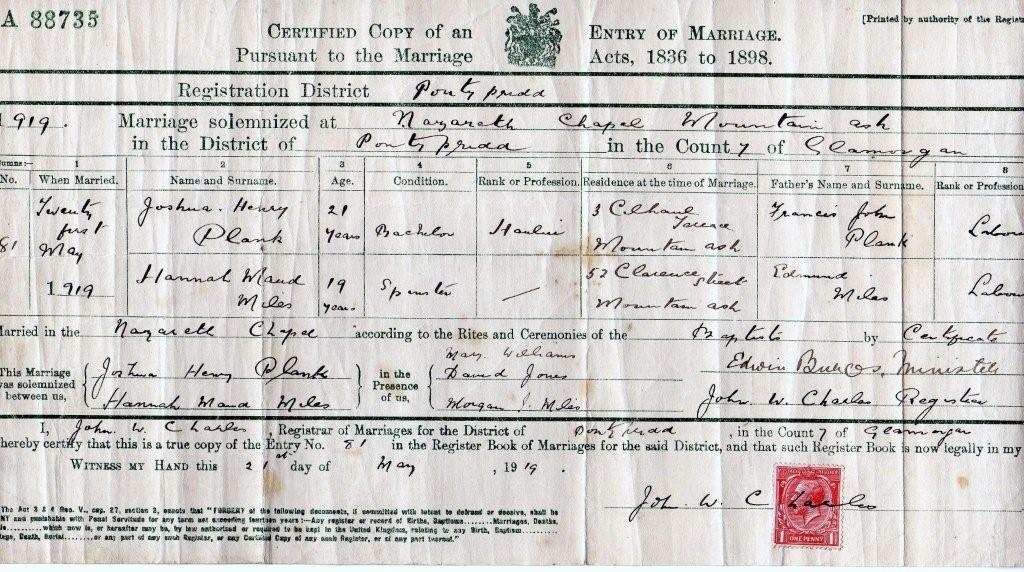 A 88735
[Printed by authority of the Regist
CERTIFIED COPY OF AN ENTRY OF MARRIAGE.
PURSUANT TO THE MARRIAGE ACTS, 1836 TO 1898.
Registration District Pontypridd
1919. Marriage solemnized at Nazareth Chapel Mountain ash
in the District of Pontypridd in the County of Glamorgan
umns:— 1 2 3 4 5 6 7 8
No. When Married. Name and Surname. Age. Condition. Rank or Profession. Residence at the time of Marriage. Father's Name and Surname. Rank or Profession
81 Twenty first May 1919
Joshua Henry Plank 21 years Bachelor Haulier 3 Terrace Mountain ash Francis John Plank Labou
Hannah Maud Miles 19 years Spinster — 52 Clarence street Mountain ash Edmund Miles Labou
Married in the Nazareth Chapel according to the Rites and Ceremonies of the Baptists by Certificate
This Marriage was solemnized between us, Joshua Henry Plank
Hannah Maud Miles
in the Presence of us, Mary Williams
David Jones
Morgan J. Miles
Edwin Minister
John W. Charles Registrar
I, John W. Charles, Registrar of Marriages for the District of Pontypridd, in the County of Glamorgan
hereby certify that this is a true copy of the Entry No. 81 in the Register Book of Marriages for the said District, and that such Register Book is now legally in my
WITNESS MY HAND this 21st day of May, 1919.
John W. Charles
ONE PENNY
The Act 3 & 4 Geo. V., cap. 27, section 3, enacts that "FORGERY of the following documents, if committed with intent to defraud or deceive, shall be
NY and punishable with Penal Servitude for any term not exceeding fourteen years :—Any register or record of Births, Baptisms.........Marriages, Deaths,
ls.........which now is, or hereafter may be, by law authorized or required to be kept in the United Kingdom, relating to any Birth, Baptism.........
iage, Death, Burial.........or any part of any such Register, or any Certified Copy of any such Register, or of any part thereof."